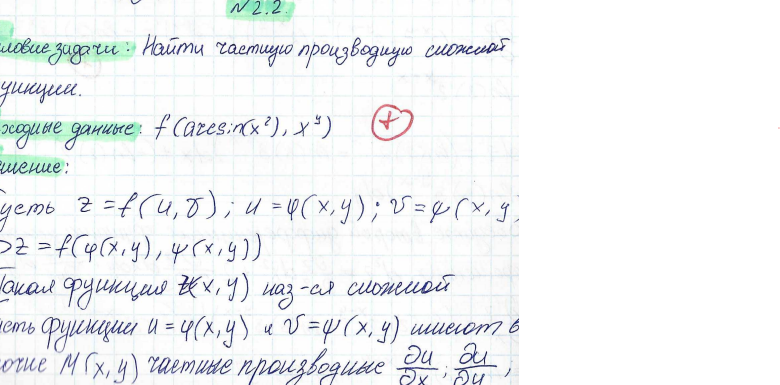 N 2.2.
ловие задачи: Найти частную производную сложной
ункции.
ходные данные: f(arcsin(x²), xʸ) +
шение:
усть z = f(u, v); u = φ(x, y); v = ψ(x, y)
z = f(φ(x, y), ψ(x, y))
Такая функция z(x, y) наз-ся сложной
сть функции u = φ(x, y) и v = ψ(x, y) имеют в
очке M(x, y) частные производные ∂u/∂x ; ∂u/∂y ,